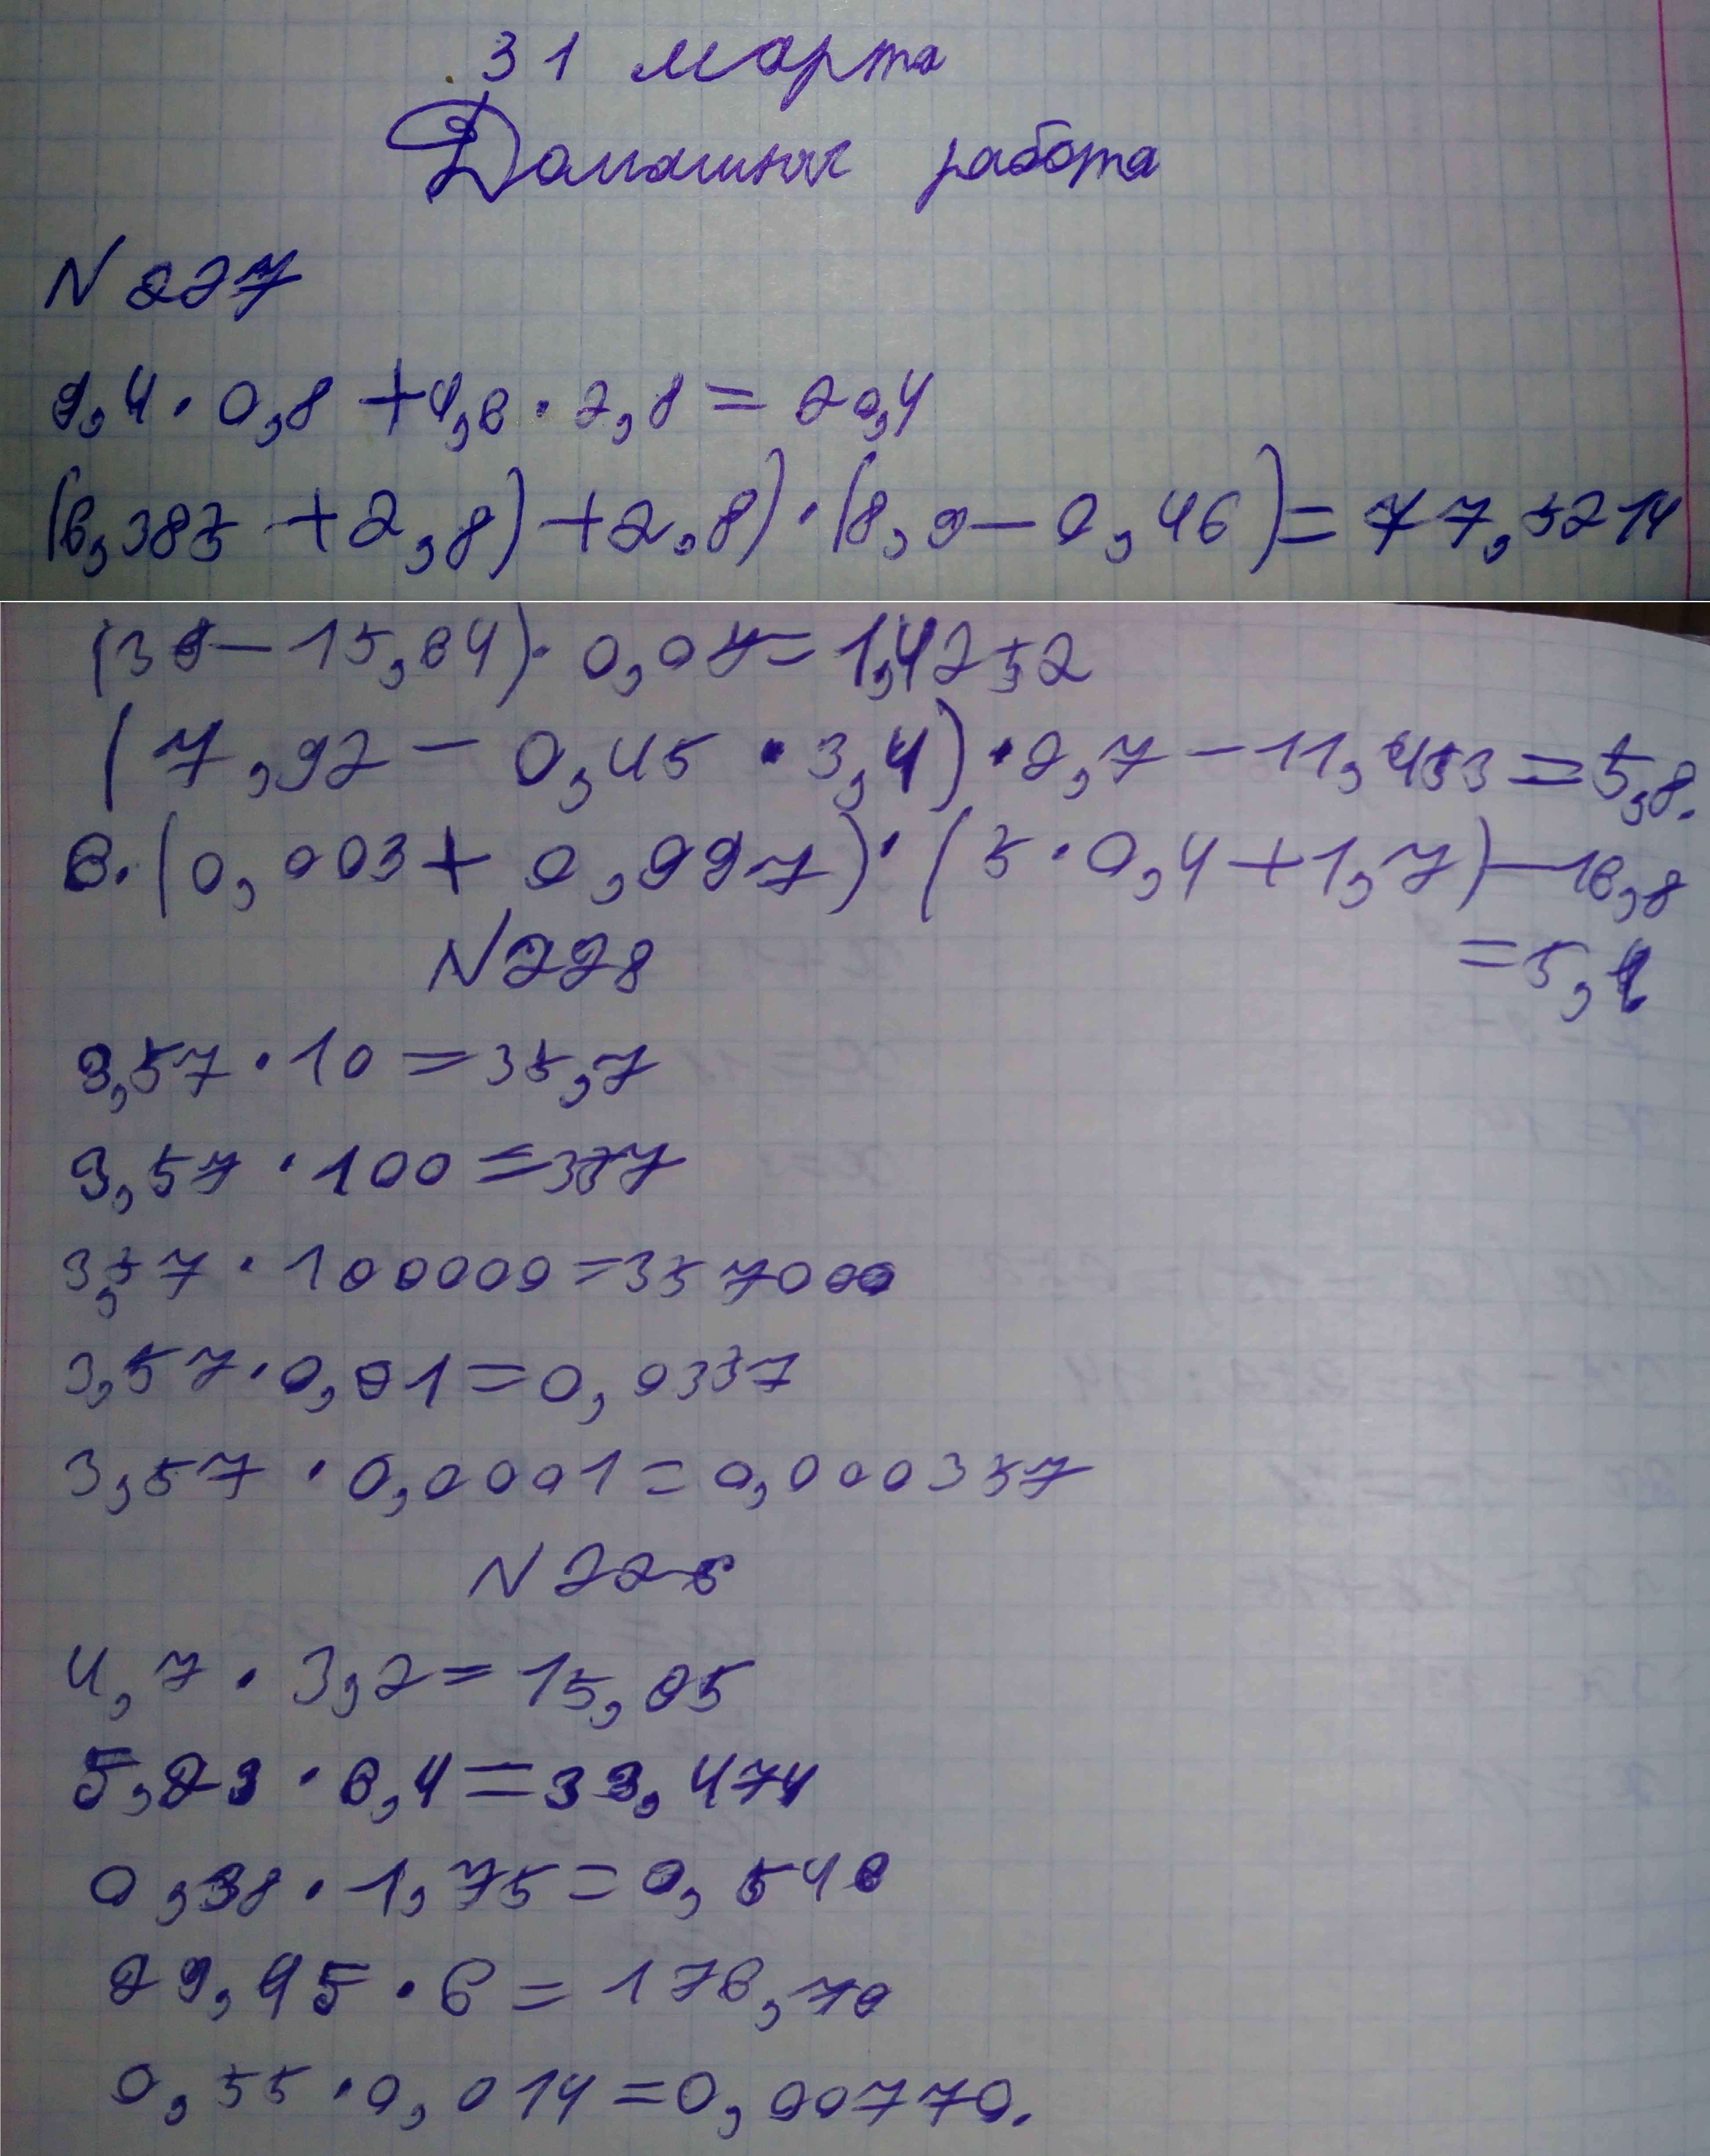 31 марта
Домашняя работа
N 227
9,4 · 0,8 + 4,6 · 2,8 = 20,4
(6,387 + 2,8) + 2,8) · (8,9 - 0,46) = 77,5214
(38 - 15,64) · 0,07 = 1,4252
(7,92 - 0,45 · 3,4) · 2,7 - 11,453 = 5,8.
6 · (0,003 + 0,997) · (5 · 0,4 + 1,7) - 16,8
= 5,4
N 228
3,57 · 10 = 35,7
3,57 · 100 = 357
3,57 · 100000 = 357000
3,57 · 0,01 = 0,0357
3,57 · 0,0001 = 0,000357
N 226
4,7 · 3,2 = 15,05
5,23 · 6,4 = 33,474
0,38 · 1,75 = 0,546
29,45 · 6 = 176,70
0,55 · 0,014 = 0,00770.